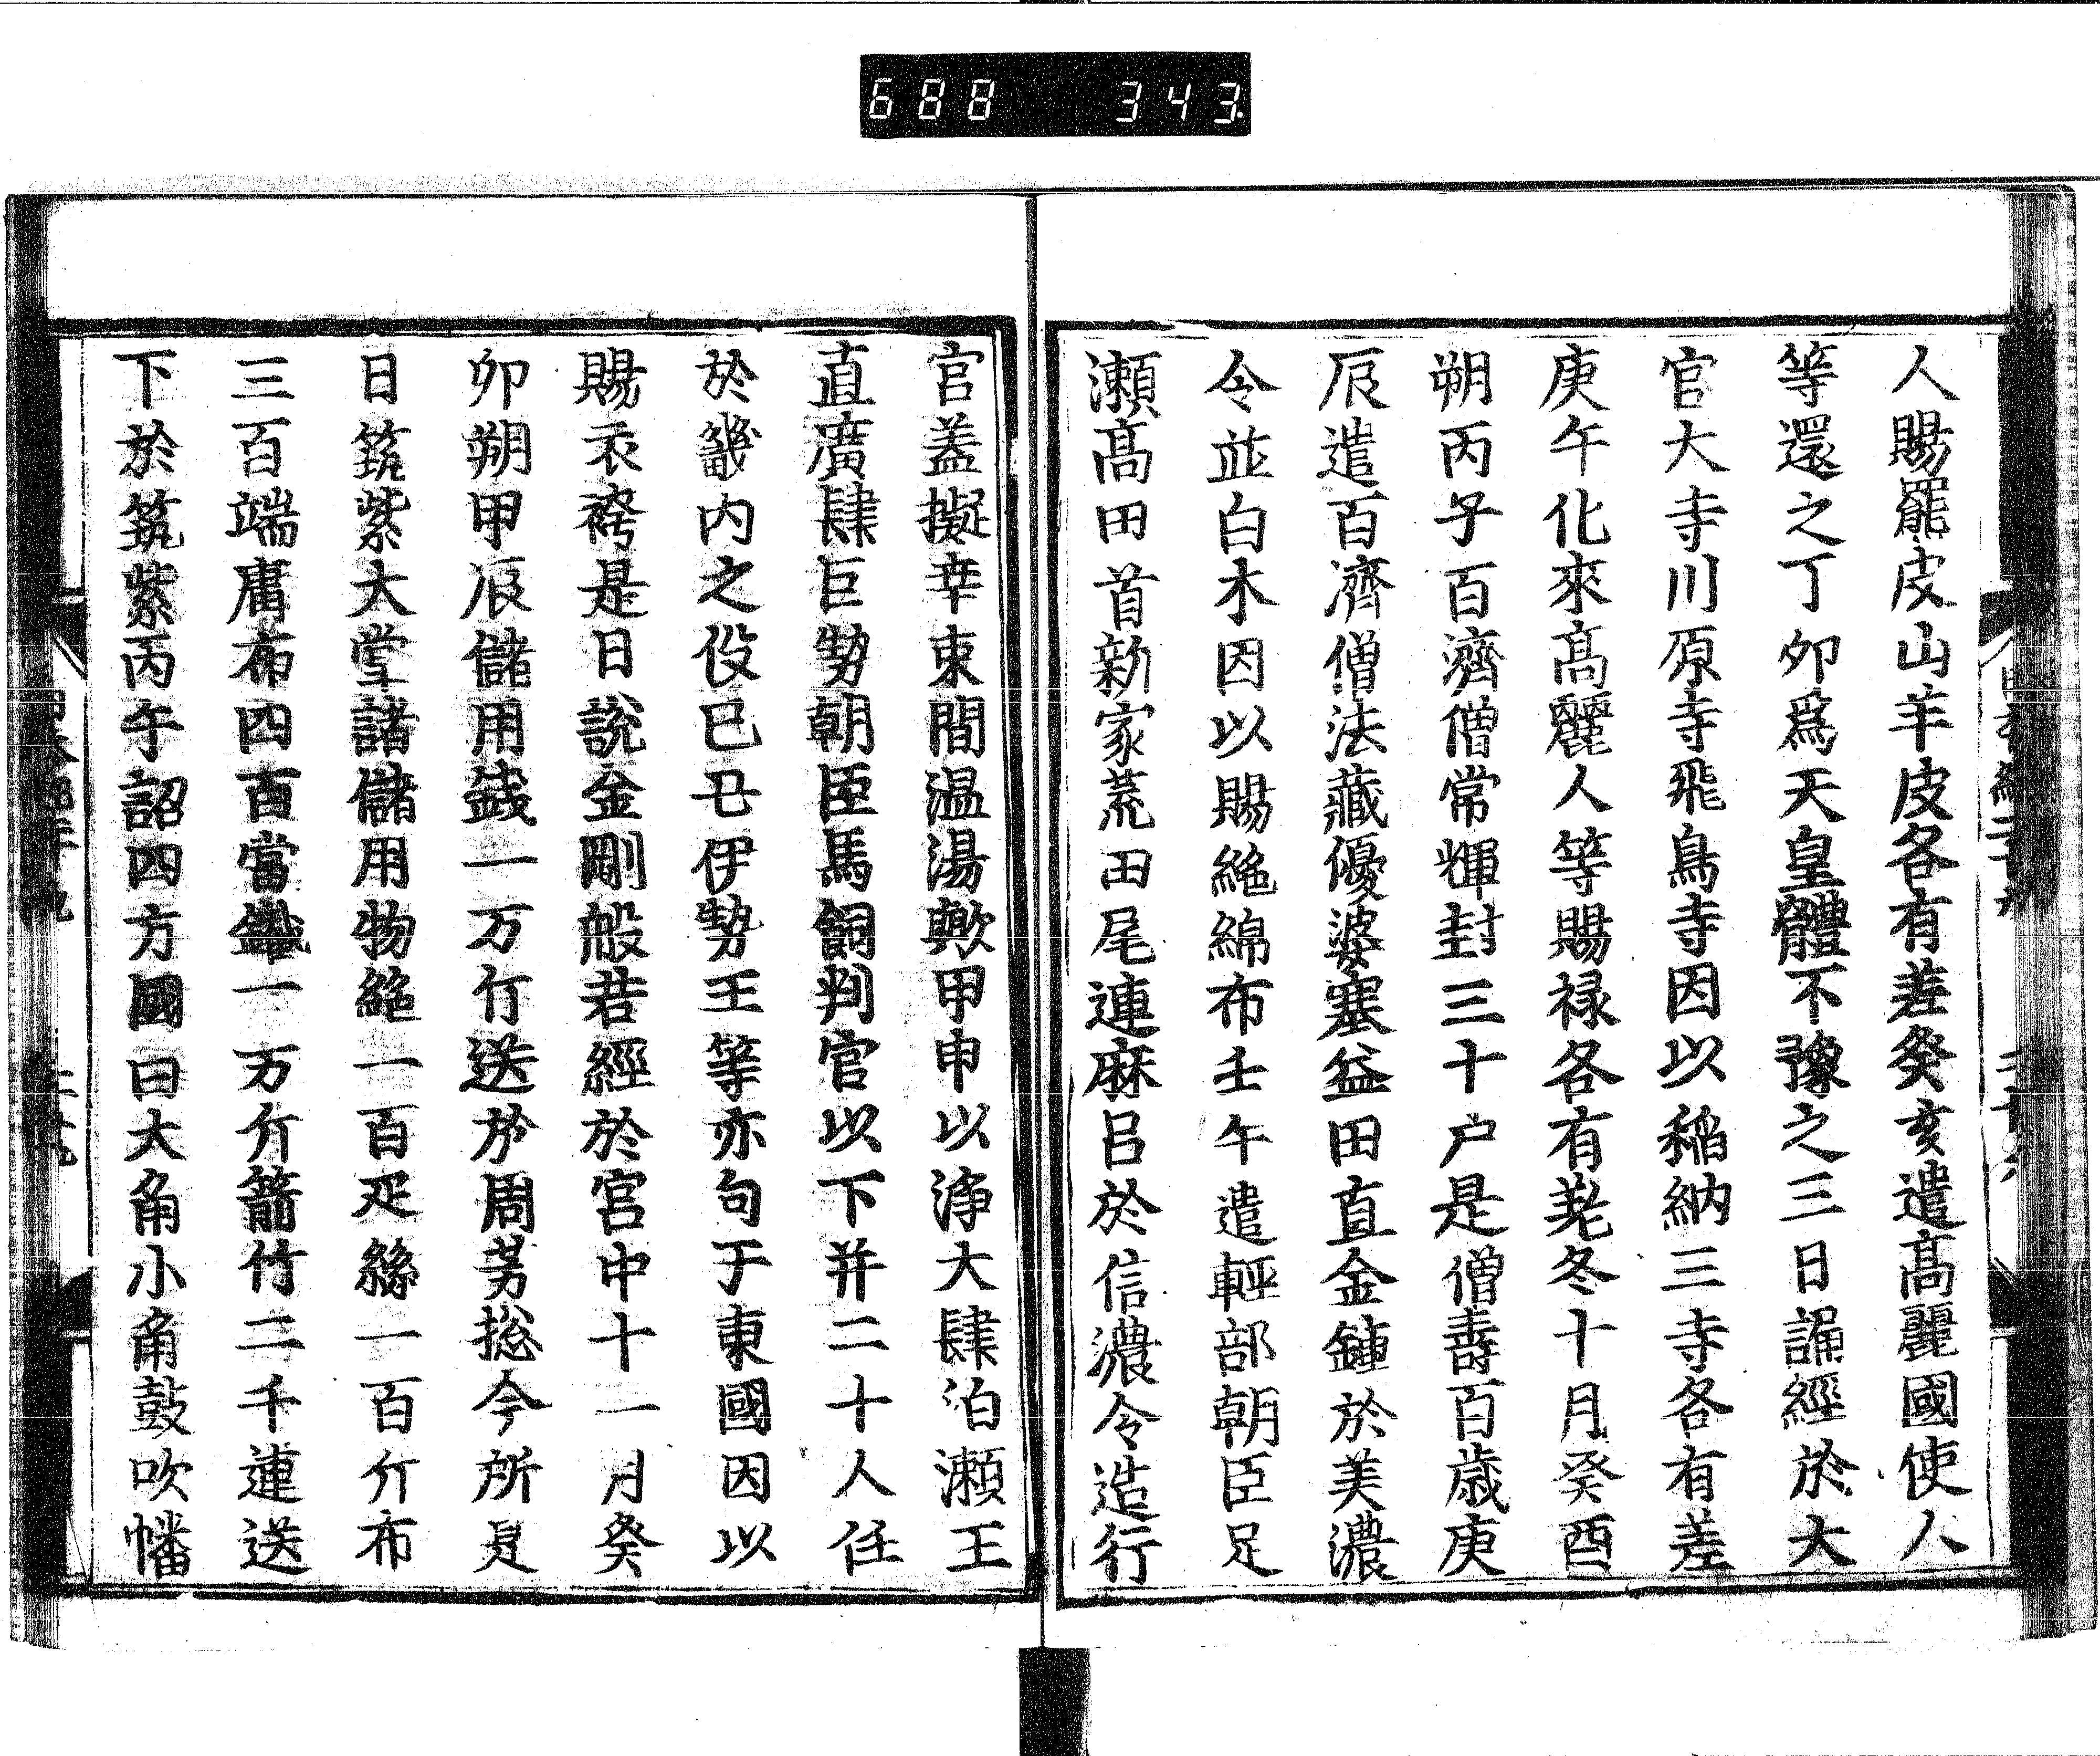 688 343
人賜羆皮山羊皮各有差癸亥遣髙麗國使人
等還之丁卯爲天皇體不豫之三日誦經於大
官大寺川原寺飛鳥寺因以稲納三寺各有差
庚午化來髙麗人等賜禄各有差冬十月癸酉
朔丙子百濟僧常輝封三十户是僧壽百歳庚
辰遣百濟僧法藏優婆塞益田直金鍾於美濃
令並白木因以賜絁綿布壬午遣輕部朝臣足
瀬髙田首新家荒田尾連麻呂於信濃令造行
官盖擬幸束間温湯歟甲申以浄大肆泊瀬王
直廣肆巨勢朝臣馬飼判官以下并二十人任
於畿内之役己丑伊勢王等亦向于東國因以
賜衣袴是日說金剛般若經於宮中十一月癸
卯朔甲辰儲用銕一万斤送於周芳揔令所是
日筑紫大宰諸儲用物絁一百疋絲一百斤布
三百端庸布四百當鐵一万斤箭竹二千連送
下於筑紫丙午詔四方國曰大角小角鼓吹幡